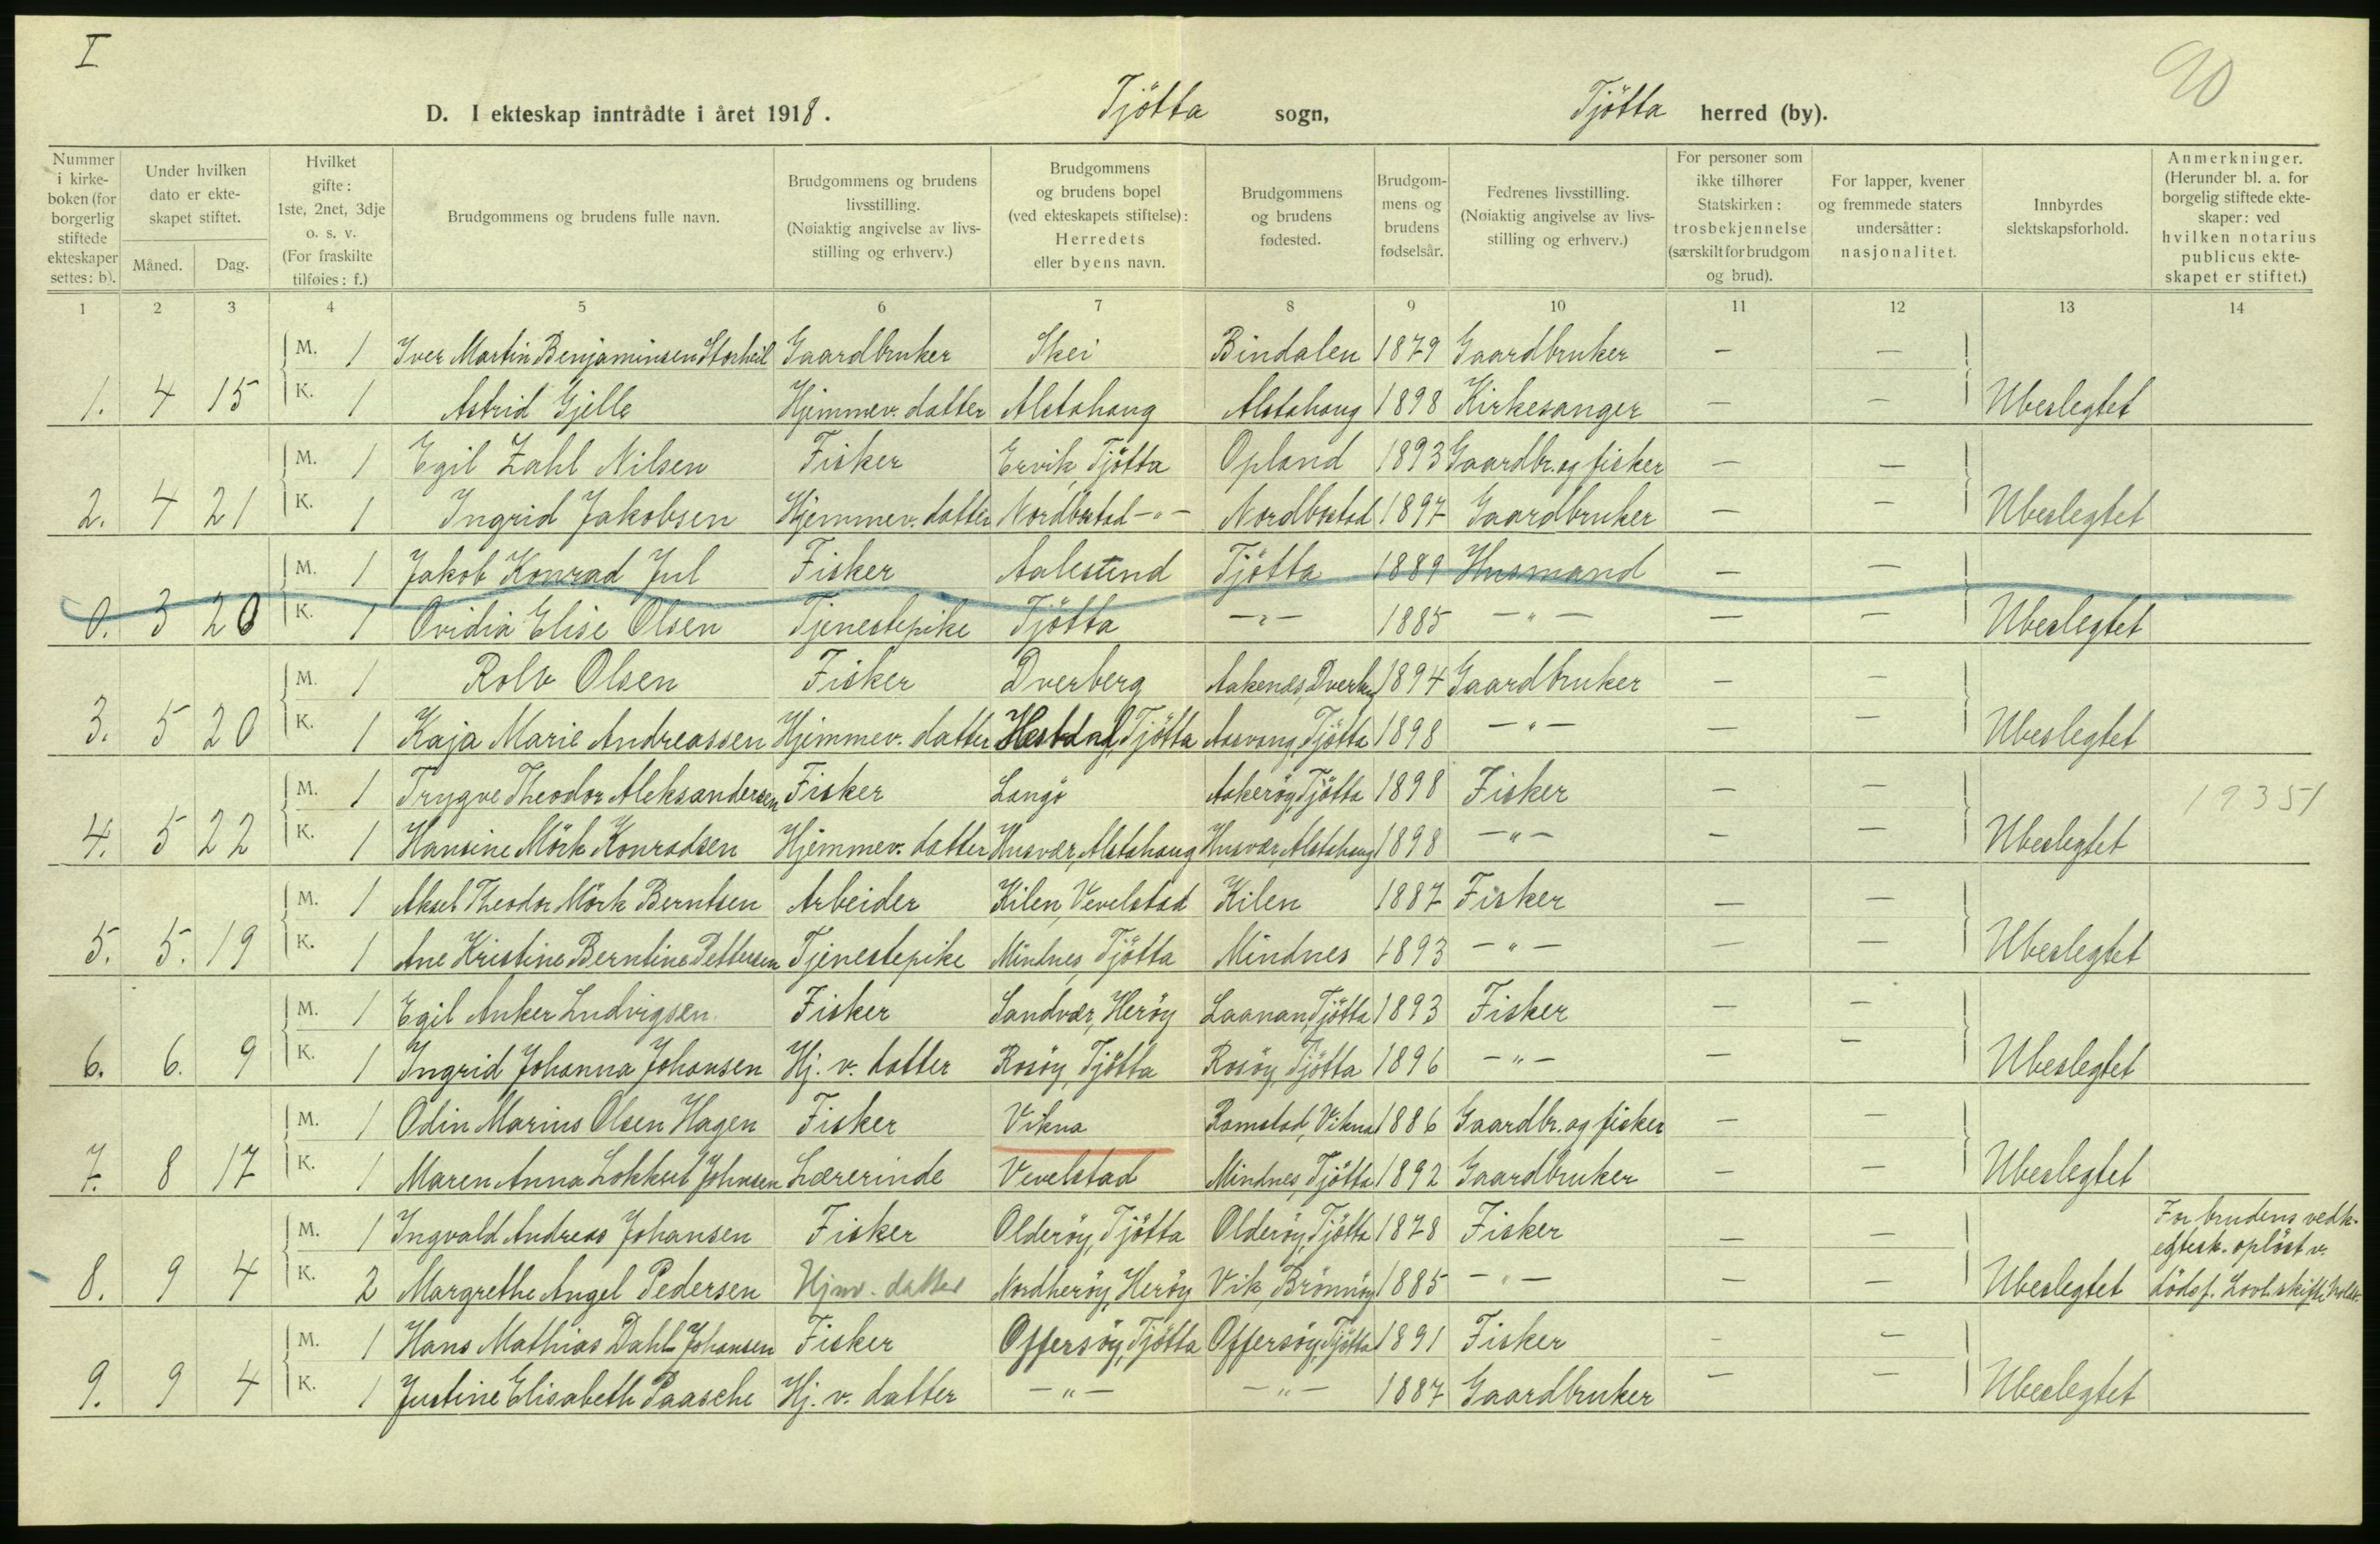 I
90
D. I ekteskap inntrådte i året 1918. Tjötta sogn, Tjötta herred (by).
Nummer i kirke-boken (for borgerlig stiftede ekteskaper settes: b). | Under hvilken dato er ekte-skapet stiftet. Måned. Dag. | Hvilket gifte: 1ste, 2net, 3dje o. s. v. (For fraskilte tilføies: f.) | Brudgommens og brudens fulle navn. | Brudgommens og brudens livsstilling. (Nøiaktig angivelse av livs-stilling og erhverv.) | Brudgommens og brudens bopel (ved ekteskapets stiftelse): Herredets eller byens navn. | Brudgommens og brudens fødested. | Brudgom-mens og brudens fødselsår. | Fedrenes livsstilling. (Nøiaktig angivelse av livs-stilling og erhverv.) | For personer som ikke tilhører Statskirken: trosbekjennelse (særskilt for brudgom og brud). | For lapper, kvener og fremmede staters undersåtter: nasjonalitet. | Innbyrdes slektskapsforhold. | Anmerkninger. (Herunder bl. a. for borgelig stiftede ekte-skaper: ved hvilken notarius publicus ekte-skapet er stiftet.)
1 2 3 4 5 6 7 8 9 10 11 12 13 14
M. 1 Iver Martin Benjaminsen Storheil Gaardbruker Skei Bindalen 1879 Gaardbruker — —
1. 4 15 K. 1 Astrid Gjelle Hjemmev. datter Alstahaug Alstahaug 1898 Kirkesanger — — Ubeslegtet
M. 1 Egil Zahl Nilsen Fisker Ervik, Tjötta Opland 1893 Gaardbr. og fisker — —
2. 4 21 K. 1 Ingrid Jakobsen Hjemmev. datter Nordbostad —„— Nordbostad 1897 Gaardbruker — — Ubeslegtet
M. 1 Jakob Konrad Jul Fisker Aalesund Tjötta 1889 Husmand — —
0. 3 20 K. 1 Ovidia Elise Olsen Tjenestepike Tjötta —„— 1885 —„— — — Ubeslegtet
M. 1 Rolv Olsen Fisker Dverberg Aakenes, Dverberg 1894 Gaardbruker — —
3. 5 20 K. 1 Kaja Marie Andreassen Hjemmev. datter Hestdal, Tjötta Aasvang, Tjötta 1898 —„— — — Ubeslegtet
M. 1 Trygve Theodor Aleksandersen Fisker Langö Aakeröy, Tjötta 1898 Fisker — — 19351
4. 5 22 K. 1 Hansine Mörk Konradsen Hjemmev. datter Husvær, Alstahaug Husvær, Alstahaug 1898 —„— — — Ubeslegtet
M. 1 Aksel Theodor Mörk Berntsen Arbeider Kilen, Vevelstad Kilen 1887 Fisker — —
5. 5. 19 K. 1 Ane Kristine Berntine Pettersen Tjenestepike Mindnes, Tjötta Mindnes 1893 —„— — — Ubeslegtet
M. 1 Egil Anker Ludvigsen. Fisker Sandvær, Heröy Laanan, Tjötta 1893 Fisker — —
6. 6. 9 K. 1 Ingrid Johanna Johansen Hj. v. datter Rosöy, Tjötta Rosöy, Tjötta 1896 —„— — — Ubeslegtet
M. 1 Odin Marius Olsen Hagen Fisker Vikna Ramstad, Vikna 1886 Gaardbr. og fisker — —
7. 8 17 K. 1 Maren Anna Lokkert Johnsen Lærerinde Vevelstad Mindnes, Tjötta 1892 Gaardbruker — — Ubeslegtet
M. 1 Ingvald Andreas Johansen Fisker Olderöy, Tjötta Olderöy, Tjötta 1878 Fisker — — For brudens vedk. egtesk. oplöst v.
8. 9 4 K. 2 Margrethe Angel Pedersen Hjmv. datter Nordheröy, Heröy Vik, Brönnöy 1885 —„— — — Ubeslegtet dödsf. Lovl. skifte holdt.
M. 1 Hans Mathias Dahl Johansen Fisker Offersöy, Tjötta Offersöy, Tjötta 1891 Fisker — —
9. 9 4 K. 1 Justine Elisabeth Paasche Hj. v. datter —„— —„— 1887 Gaardbruker — — Ubeslegtet